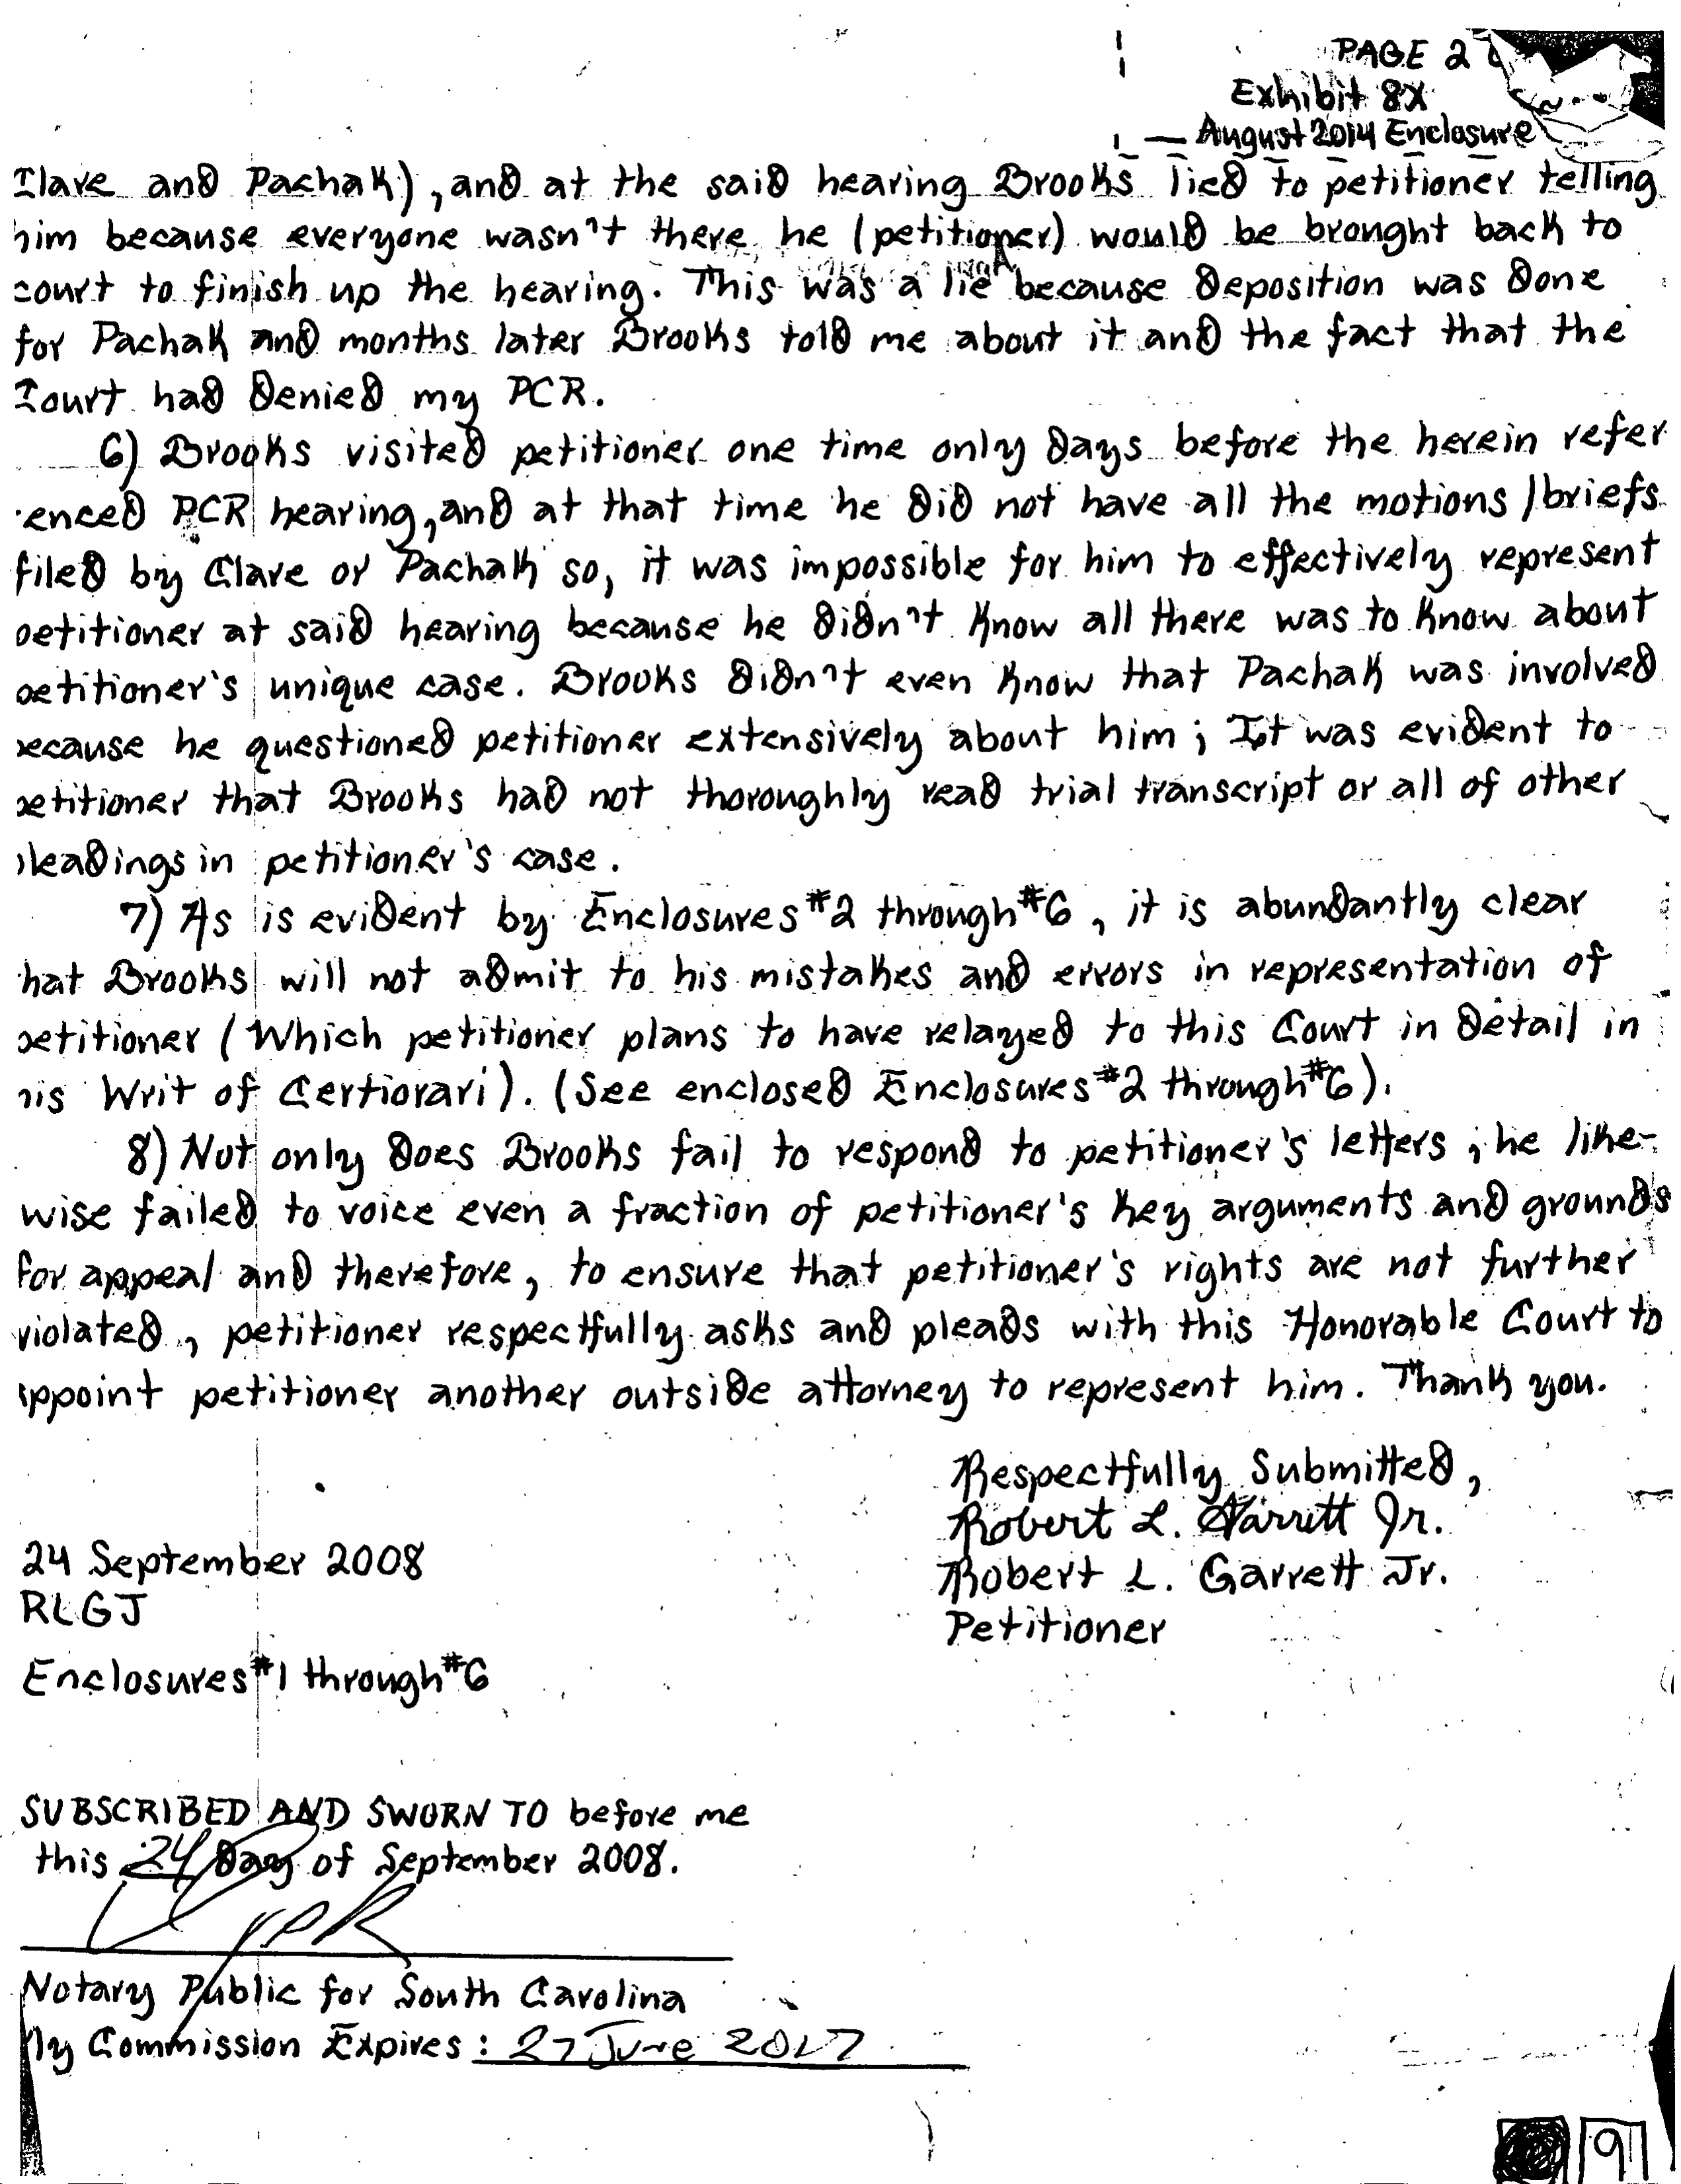 PAGE 2
Exhibit 8X
— August 2014 Enclosure
Clave and Pachak), and at the said hearing Brooks lied to petitioner telling
him because everyone wasn't there he (petitioner) would be brought back to
court to finish up the hearing. This was a lie because deposition was done
for Pachak and months later Brooks told me about it and the fact that the
Court had denied my PCR.
6) Brooks visited petitioner one time only days before the herein refer
enced PCR hearing, and at that time he did not have all the motions/briefs
filed by Clave or Pachak so, it was impossible for him to effectively represent
petitioner at said hearing because he didn't know all there was to know about
petitioner's unique case. Brooks didn't even know that Pachak was involved
because he questioned petitioner extensively about him; It was evident to
petitioner that Brooks had not thoroughly read trial transcript or all of other
pleadings in petitioner's case.
7) As is evident by Enclosures #2 through #6, it is abundantly clear
that Brooks will not admit to his mistakes and errors in representation of
petitioner (Which petitioner plans to have relayed to this Court in detail in
his Writ of Certiorari). (See enclosed Enclosures #2 through #6).
8) Not only does Brooks fail to respond to petitioner's letters; he like-
wise failed to voice even a fraction of petitioner's key arguments and grounds
for appeal and therefore, to ensure that petitioner's rights are not further
violated, petitioner respectfully asks and pleads with this Honorable Court to
appoint petitioner another outside attorney to represent him. Thank you.
Respectfully Submitted,
Robert L. Garrett Jr.
Robert L. Garrett Jr.
Petitioner
24 September 2008
RLGJ
Enclosures #1 through #6
SUBSCRIBED AND SWORN TO before me
this 24 day of September 2008.
Notary Public for South Carolina
My Commission Expires: 27 June 2017
91